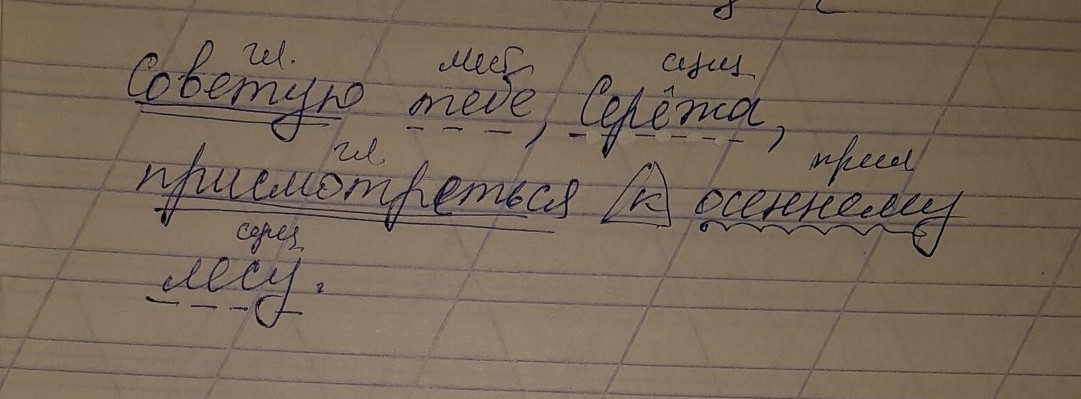 гл. мест сущ
Советую тебе, Серёжа,
гл. прил
присмотреться к осеннему
сущ
лесу.